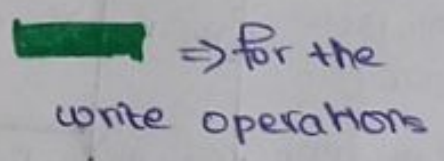 ⇒ for the
write operations